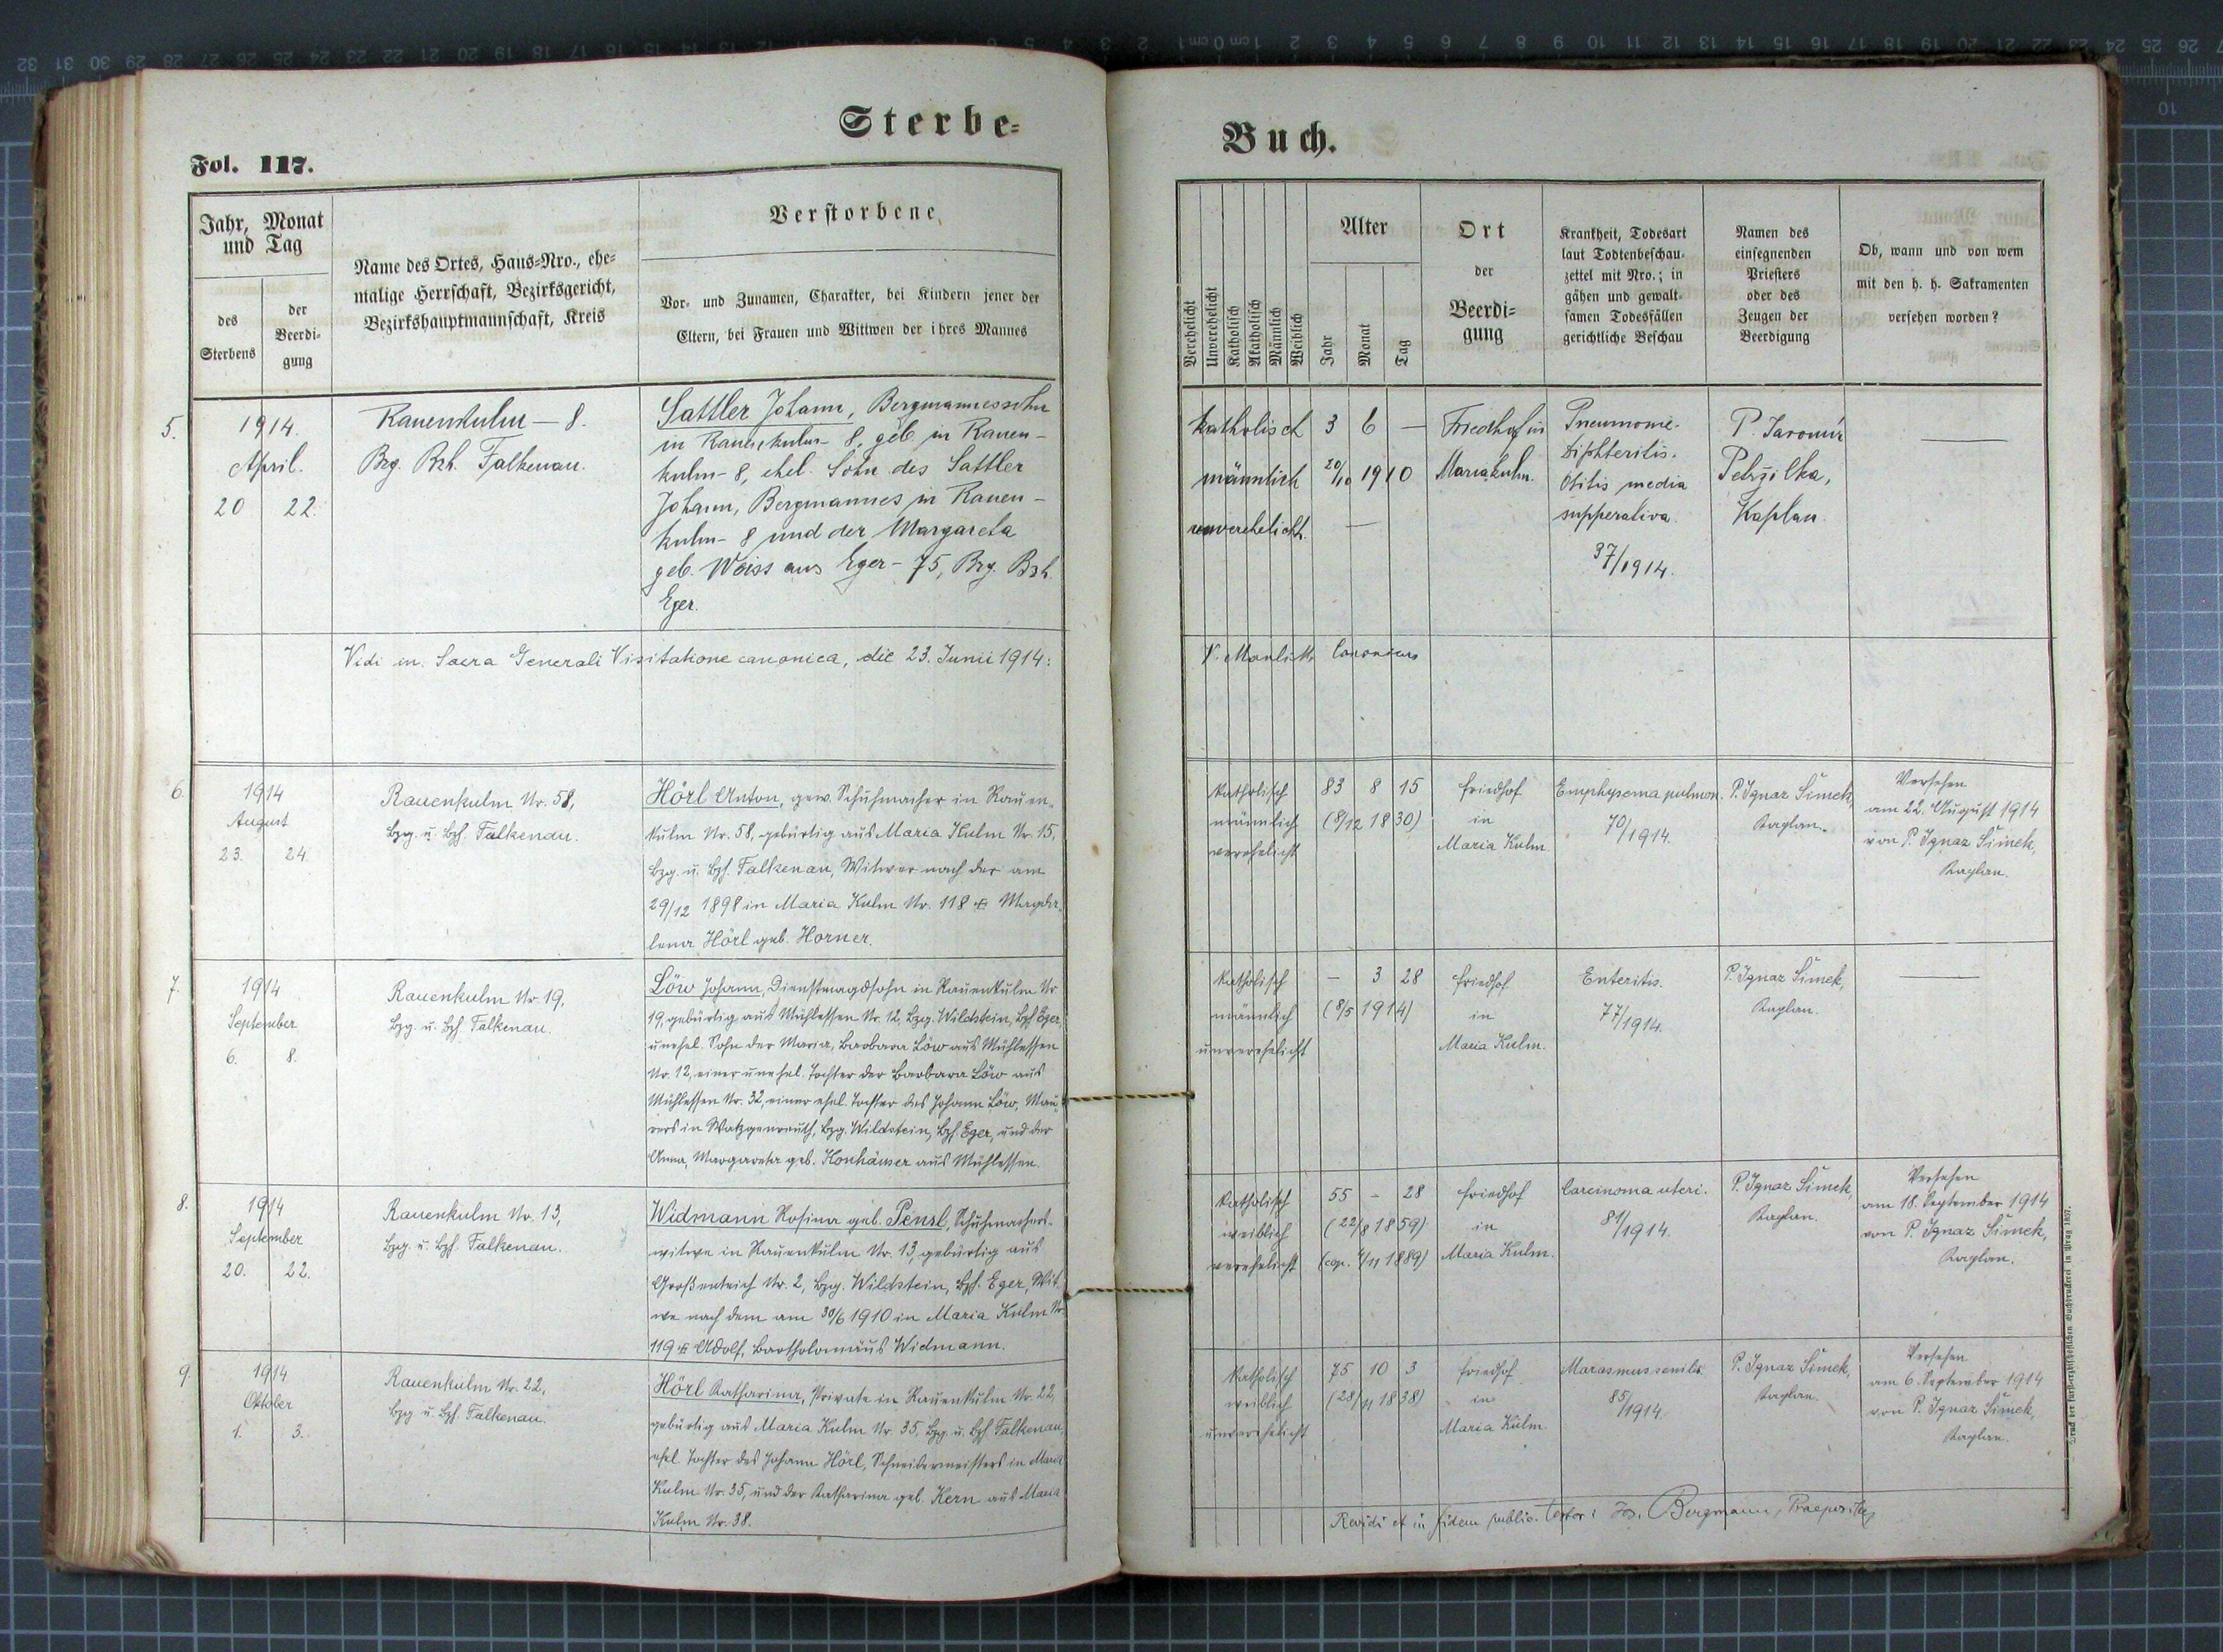 Sterbe=
Buch.
Fol. 117.
Jahr, Monat
und Tag
des
Sterbens
der
Beerdi-
gung
Name des Ortes, Haus=Nro., ehe=
malige Herrschaft, Bezirksgericht,
Bezirkshauptmannschaft, Kreis
Verstorbene
Vor- und Zunamen, Charakter, bei Kindern jener der
Eltern, bei Frauen und Wittwen der ihres Mannes
Verehelicht
Unverehelicht
Katholisch
Akatholisch
Männlich
Weiblich
Alter
Jahr
Monat
Tag
Ort
der
Beerdi=
gung
Krankheit, Todesart
laut Todtenbeschau-
zettel mit Nro.; in
gähen und gewalt-
samen Todesfällen
gerichtliche Beschau
Namen des
einsegnenden
Priesters
oder des
Zeugen der
Beerdigung
Ob, wann und von wem
mit den h. h. Sakramenten
versehen worden?
5.
1914.
April.
20 22.
Rauenkulm — 8.
Bzg. Bzh. Falkenau.
Sattler Johann, Bergmannessohn
in Rauenkulm - 8, geb. in Rauen-
kulm - 8, ehel. Sohn des Sattler
Johann, Bergmannes in Rauen-
kulm - 8 und der Margareta
geb. Weiss aus Eger - 75, Bzg. Bzh.
Eger.
katholisch
männlich
unverehelicht.
3 6 —
20/10 1910
—
Friedhof in
Mariakulm.
Pneumonie.
Diphteritis.
Otitis media
supperativa.
37/1914.
P. Jaromír
Petržilka,
Kaplan.
—
Vidi in Sacra Generali Visitatione canonica, die 23. Junii 1914:
Canonicus
6.
1914
August
23. 24.
Rauenkulm Nr. 58,
Bzg. u. Bzh. Falkenau.
Hörl Anton, gew. Schuhmacher in Rauen-
kulm Nr. 58, gebürtig aus Maria Kulm Nr. 15,
Bzg. u. Bzh. Falkenau, Witwer nach der am
29/12 1898 in Maria Kulm Nr. 118 + Magda-
lena Hörl geb. Horner.
katholisch
männlich
verehelicht
83 8 15
(8/12 1830)
Friedhof
in
Maria Kulm.
Emphysema pulmon.
70/1914.
P. Ignaz Šimek,
Kaplan.
Versehen
am 22. August 1914
von P. Ignaz Šimek,
Kaplan.
7.
1914
September
6. 8.
Rauenkulm Nr. 19,
Bzg. u. Bzh. Falkenau.
Löw Johann, Dienstmagdsohn in Rauenkulm Nr.
19, gebürtig aus Mühlessen Nr. 12, Bzg. Wildstein, Bzh. Eger,
unehel. Sohn der Maria, Barbara Löw aus Mühlessen
Nr. 12, einer unehel. Tochter der Barbara Löw aus
Mühlessen Nr. 32, einer ehel. Tochter des Johann Löw, Mau-
rers in Watzgenreuth, Bzg. Wildstein, Bzh. Eger, und der
Anna, Margareta geb. Honhäuser aus Mühlessen.
katholisch
männlich
unverehelicht
— 3 28
(8/5 1914)
Friedhof
in
Maria Kulm.
Enteritis.
77/1914.
P. Ignaz Šimek,
Kaplan.
—
8.
1914
September
20. 22.
Rauenkulm Nr. 13,
Bzg. u. Bzh. Falkenau.
Widmann Rosina geb. Pensl, Schuhmachers-
witwe in Rauenkulm Nr. 13, gebürtig aus
Großenteich Nr. 2, Bzg. Wildstein, Bzh. Eger, Wit-
we nach dem am 30/6 1910 in Maria Kulm Nr.
119 + Adolf, Bartholomäus Widmann.
katholisch
weiblich
verehelicht
55 – 28
(22/8 1859)
(cop. 4/11 1889)
Friedhof
in
Maria Kulm.
Carcinoma uteri.
81/1914.
P. Ignaz Šimek,
Kaplan.
Versehen
am 18. September 1914
von P. Ignaz Šimek,
Kaplan.
9.
1914
Oktober
1. 3.
Rauenkulm Nr. 22,
Bzg. u. Bzh. Falkenau.
Hörl Katharina, Private in Rauenkulm Nr. 22,
gebürtig aus Maria Kulm Nr. 35, Bzg. u. Bzh. Falkenau,
ehel. Tochter des Johann Hörl, Schneidermeisters in Maria
Kulm Nr. 35, und der Katharina geb. Kern aus Maria
Kulm Nr. 38.
katholisch
weiblich
unverehelicht
75 10 3
(28/11 1838)
Friedhof
in
Maria Kulm.
Marasmus senilis.
85/1914.
P. Ignaz Šimek,
Kaplan.
Versehen
am 6. September 1914
von P. Ignaz Šimek,
Kaplan.
Revidi et in fidem public. testor: Jos. Bergmann, Praepositus
Druck der fürsterzbischöflichen Buchdruckerei in Prag 1857.